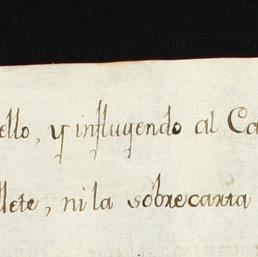 ello, y influyendo al Ca
llete, ni la sobrecarta